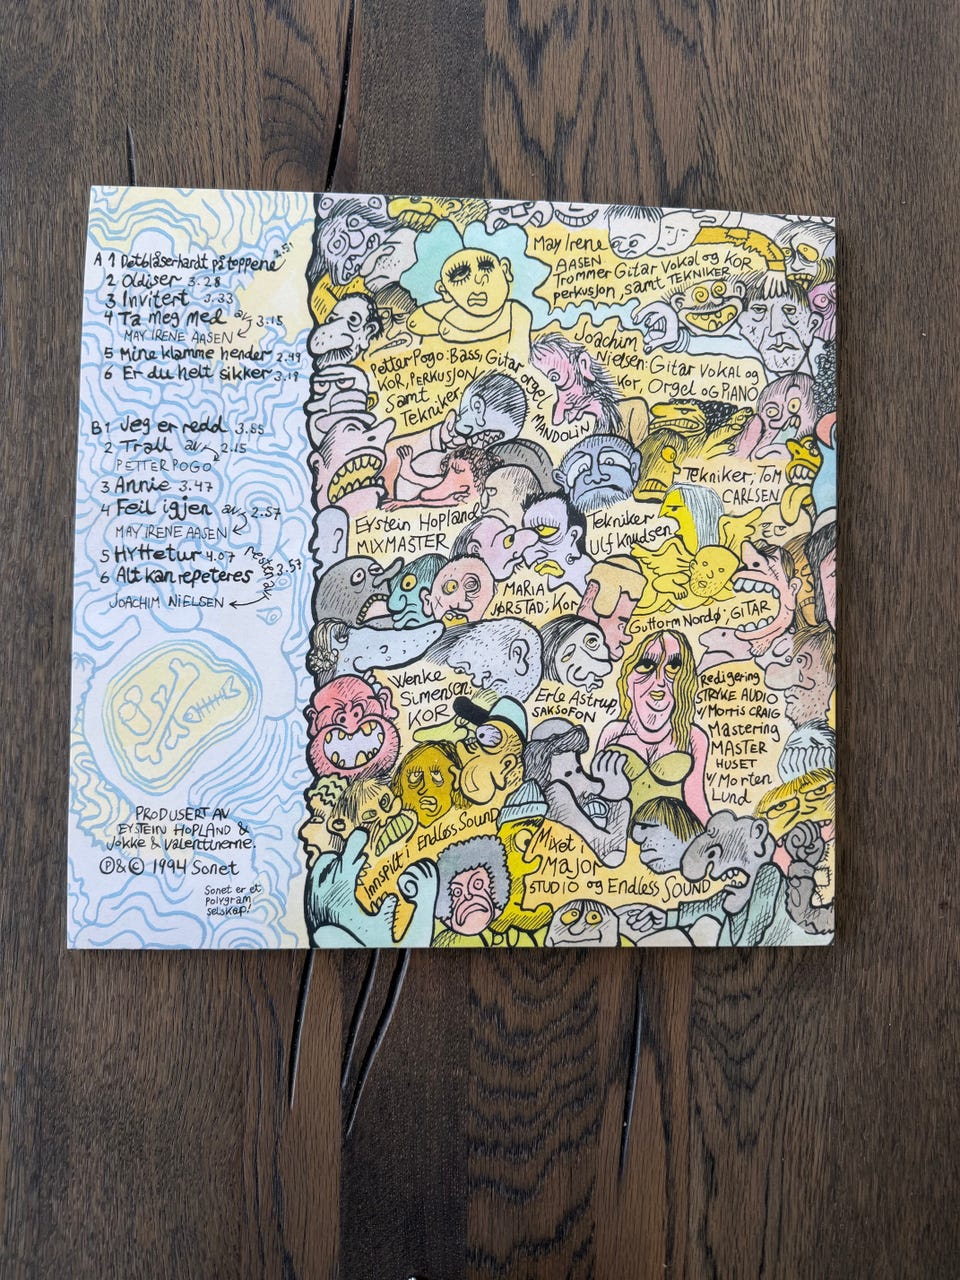 A 1 Detblåserhardt på toppene 2.51
2 Oldiser 3.28
3 Invitert 3.33
4 Ta meg med av 3.15
MAY IRENE AASEN
5 Mine klamme hender 2.49
6 Er du helt sikker 3.19
B1 Jeg er redd 3.55
2 Trall av 2.15
PETTER POGO
3 Annie 3.47
4 Feil igjen av 2.57
MAY IRENE AASEN
5 HYttetur 4.07
6 Alt kan repeteres nesten av 3.57
JOACHIM NIELSEN
PRODUSERT AV
EYSTEIN HOPLAND &
Jokke & Valentinerne.
Ⓟ&© 1994 Sonet
Sonet er et
Polygram
selskap!
May Irene
AASEN
Trommer Gitar Vokal og KOR
perkusjon, samt TEKNIKER
Petter Pogo: Bass Gitar orgel
KOR, PERKUSJON MANDOLIN
Samt
Tekniker
Joachim
Nielsen: Gitar Vokal og
Kor, Orgel og PIANO
Tekniker; TOM
CARLSEN
Eystein Hopland
MIXMASTER
Tekniker
Ulf Knudsen
MARIA
JØRSTAD; Kor
Guttorm Nordø; GITAR
Wenke
Simensen;
KOR
Erle Astrup
SAKSOFON
Redigering
STRYKE AUDIO
v/Morris CRAIG
Mastering
MASTER
HUSET
v/Morten
Lund
Innspilt i Endless Sound
Mixet i
Major
STUDIO og Endless SOUND